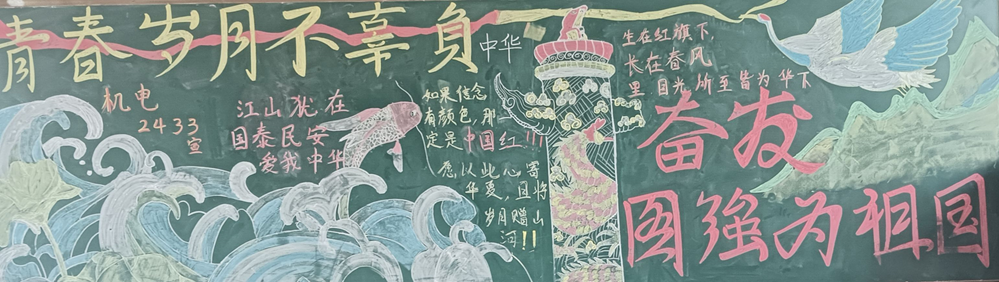 青春岁月不辜负
中华
机电
2433
宣
江山犹在
国泰民安
爱我中华
如果信念
有颜色,那一
定是中国红!!!
愿以此心寄
华夏,且将
岁月赠山
河!!
生在红旗下,
长在春风
里 目光所至皆为华下
奋发
图强为祖国